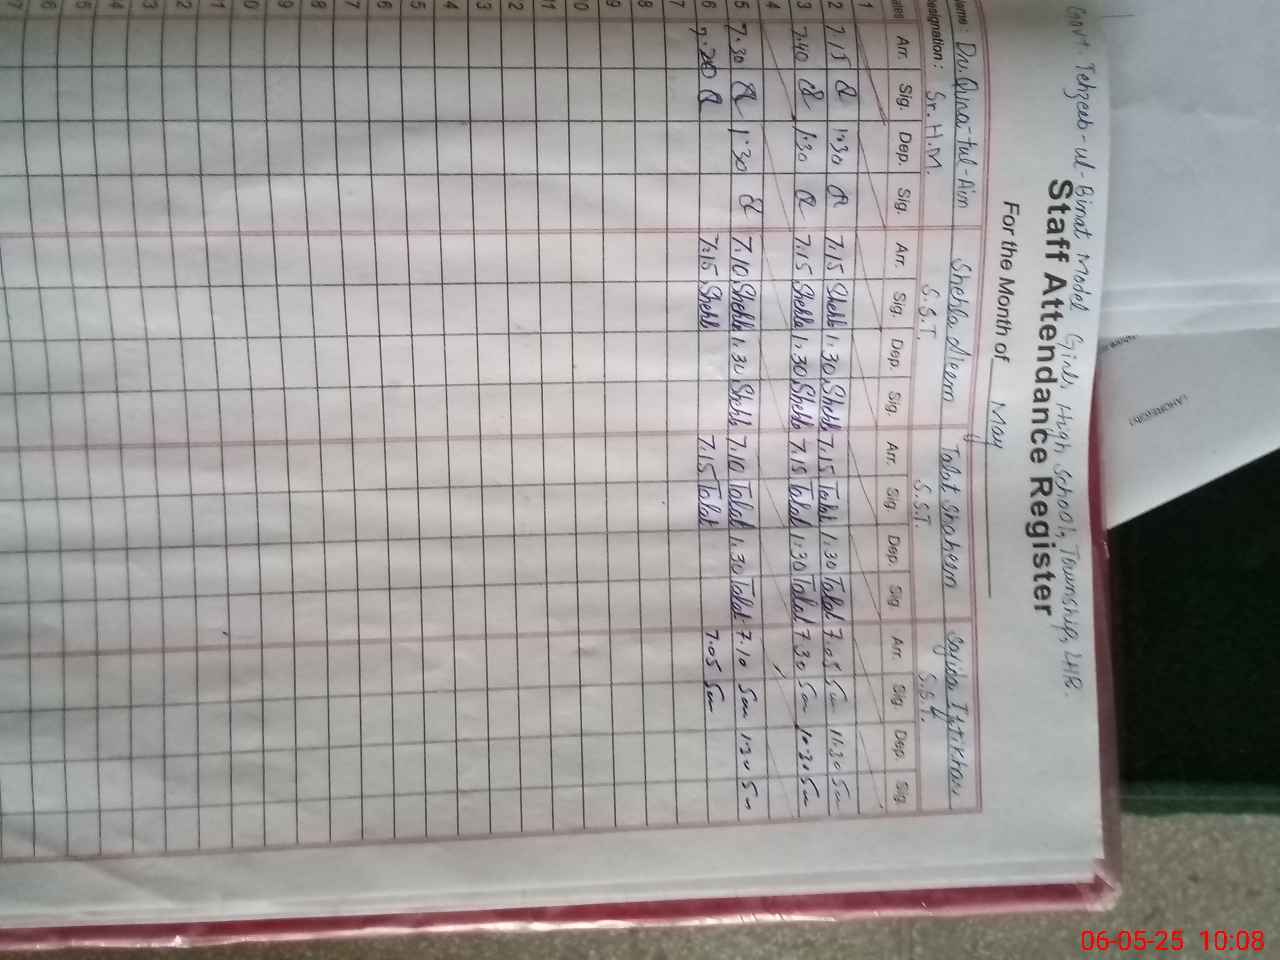 Govt. Tehzeeb-ul-Binat Model Girls High School, Township, LHR.
Staff Attendance Register
For the Month of May
Name: Dr. Qurat-tul-Ain Shehla Aleem Talat Shaheen Sajida Iftikhar
Designation: Sr. H.M. S.S.T. S.S.T. S.S.T.
Dates Arr. Sig. Dep. Sig. Arr. Sig. Dep. Sig. Arr. Sig. Dep. Sig. Arr. Sig. Dep. Sig.
1
2 7.15 1:30 7.15 Shehla 1.30 Shehla 7.15 Talat 1.30 Talat 7.05 1:30
3 7.40 1:30 7.15 Shehla 1.30 Shehla 7.15 Talat 1.30 Talat 7.30
4
5 7.30 1:30 7.10 Shehla 1.30 Shehla 7.10 Talat 1.30 Talat 7.10 1:30
6 7.20 7.15 Shehla 7.15 Talat 7.05
7
8
9
10
11
12
13
14
15
16
17
18
19
20
21
22
23
24
25
26
27
06-05-25 10:08